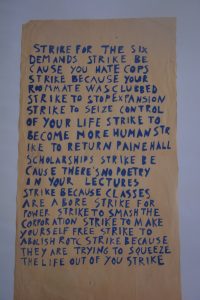 STRIKE FOR THE SIX
DEMANDS STRIKE BE
CAUSE YOU HATE COPS
STRIKE BECAUSE YOUR
ROOMMATE WAS CLUBBED
STRIKE TO STOP EXPANSION
STRIKE TO SEIZE CONTROL
OF YOUR LIFE STRIKE TO
BECOME MORE HUMAN STR
IKE TO RETURN PAINE HALL
SCHOLARSHIPS STRIKE BE
CAUSE THERE'S NO POETRY
IN YOUR LECTURES
STRIKE BECAUSE CLASSES
ARE A BORE STRIKE FOR
POWER STRIKE TO SMASH THE
CORPORATION STRIKE TO MAKE
YOURSELF FREE STRIKE TO
ABOLISH ROTC STRIKE BECAUSE
THEY ARE TRYING TO SQUEEZE
THE LIFE OUT OF YOU STRIKE